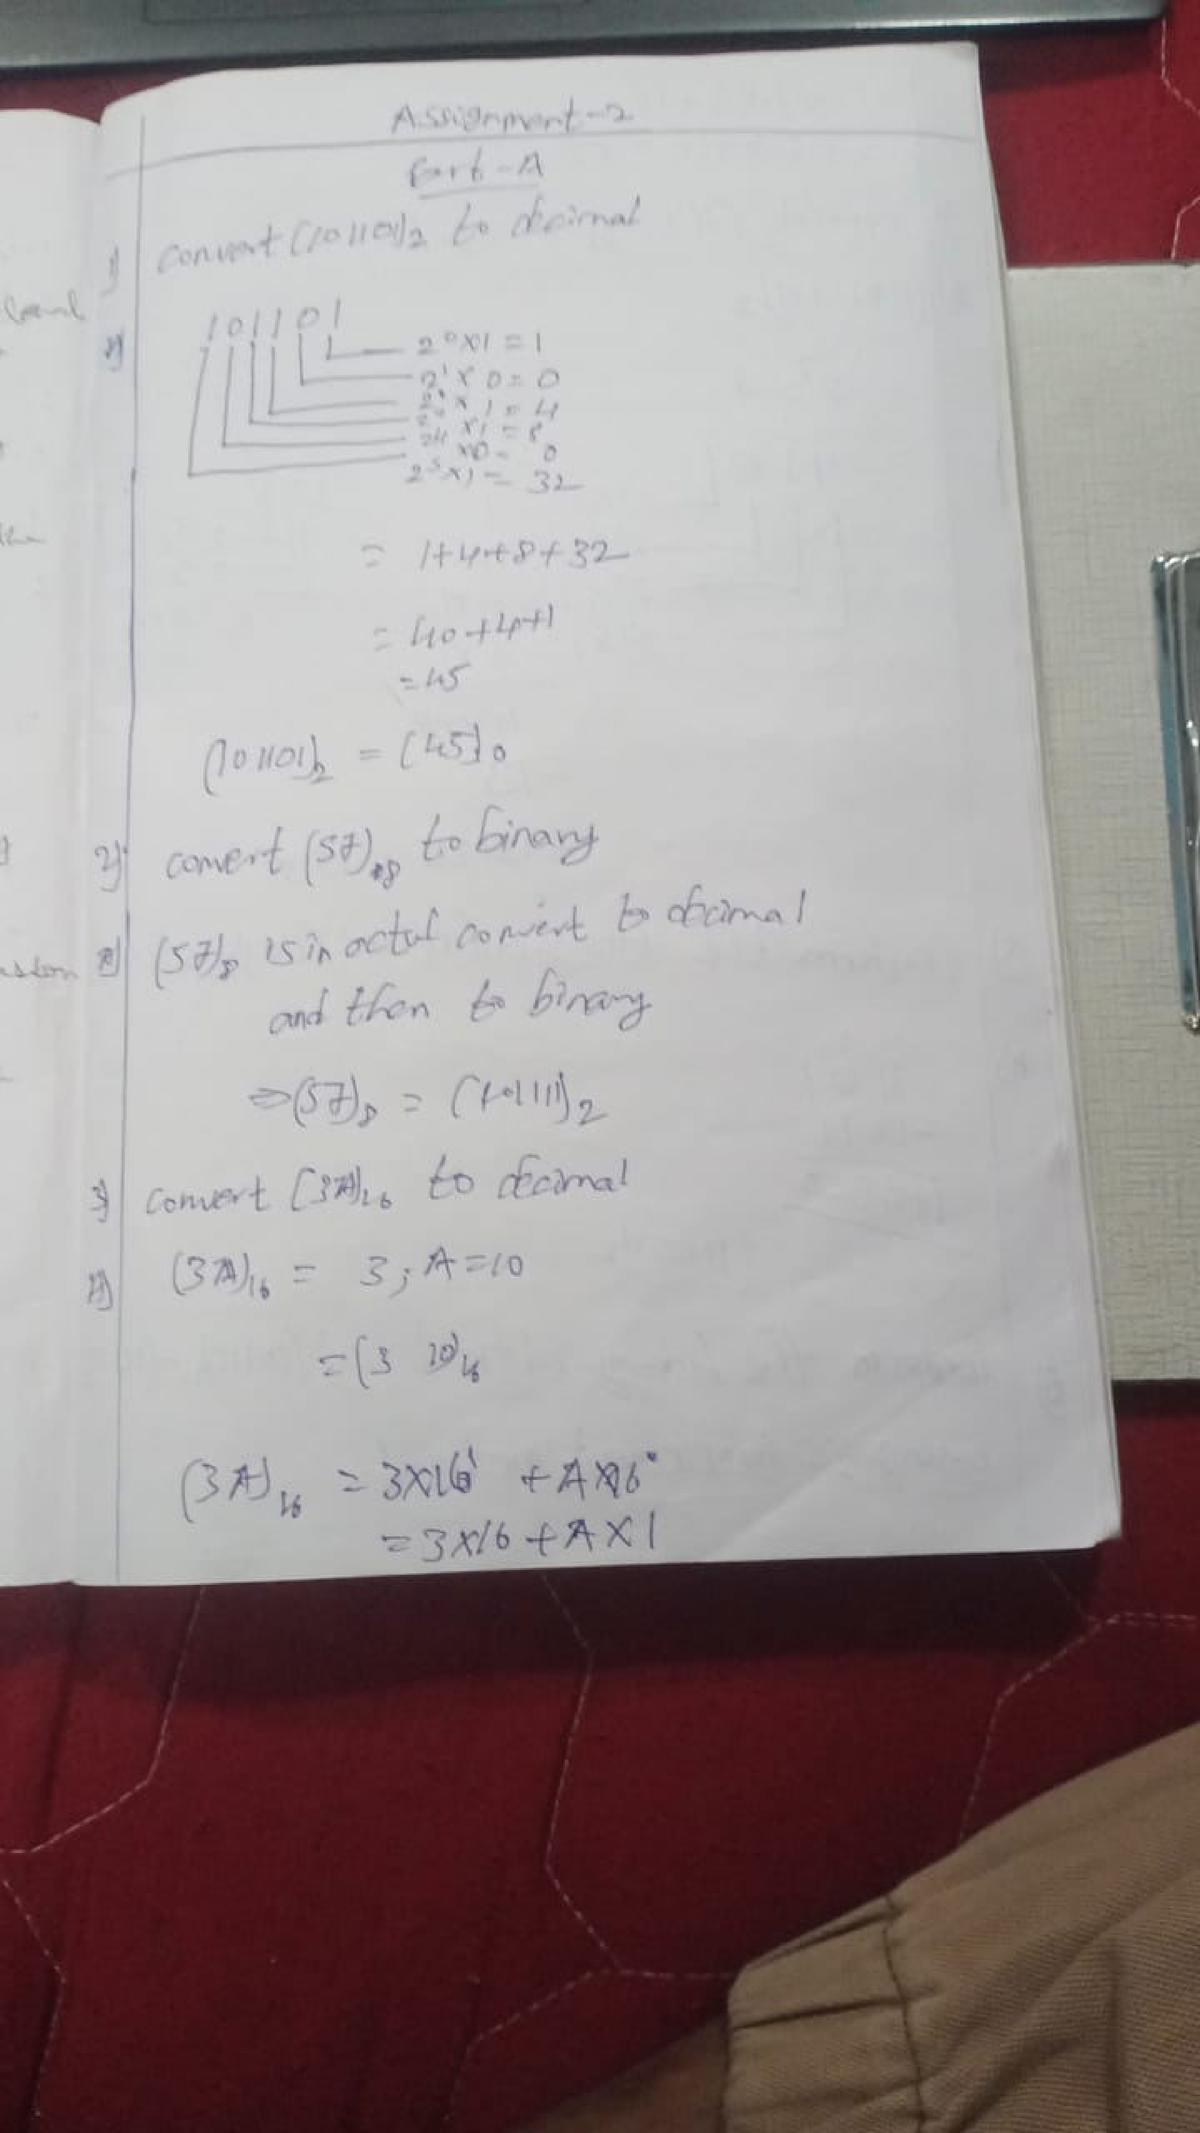 Assignment-2
Part-A
1) convert (101101)2 to decimal
101101
2^0x1 = 1
2^1 x 0 = 0
x 1 = 4
x1 = 8
2^4 x0 = 0
2^5 x1 = 32
= 1+4+8+32
= 40+4+1
= 45
(101101)2 = (45)10
2) convert (57)8 to binary
A) (57)8 is in octal convert to decimal
and then to binary
⇒ (57)8 = (101111)2
3) convert (3A)16 to decimal
A) (3A)16 = 3; A=10
= (3 10)16
(3A)16 = 3x16^1 + Ax16^0
= 3x16 + Ax1